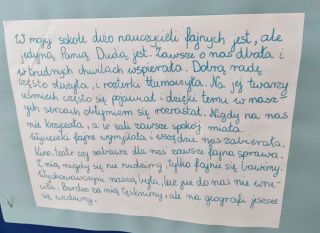 W mojej szkole dużo nauczycieli fajnych jest, ale
jedyna Panią Dudą jest. Zawsze o nas dbała i
w trudnych chwilach wspierała. Dobrą radą
często służyła, i rozterki tłumaczyła. Na jej twarzy
uśmiech często się pojawiał i dzięki temu w nasz
ych sercach olbrzymem się rozrastał. Nigdy na nas
nie krzyczała, a w sali zawsze spokój miała.
Wycieczki fajne wymyślała, i wszędzie nas zabierała.
Kino, teatr czy zabawa dla nas zawsze fajna sprawa.
Z nią nigdy się nie nudzimy, tylko fajnie się bawimy.
Wychowawczynią naszą była, lecz już do nas nie wró-
ciła. Bardzo za nią tęsknimy, ale na geografii jeszcze
się widzimy.